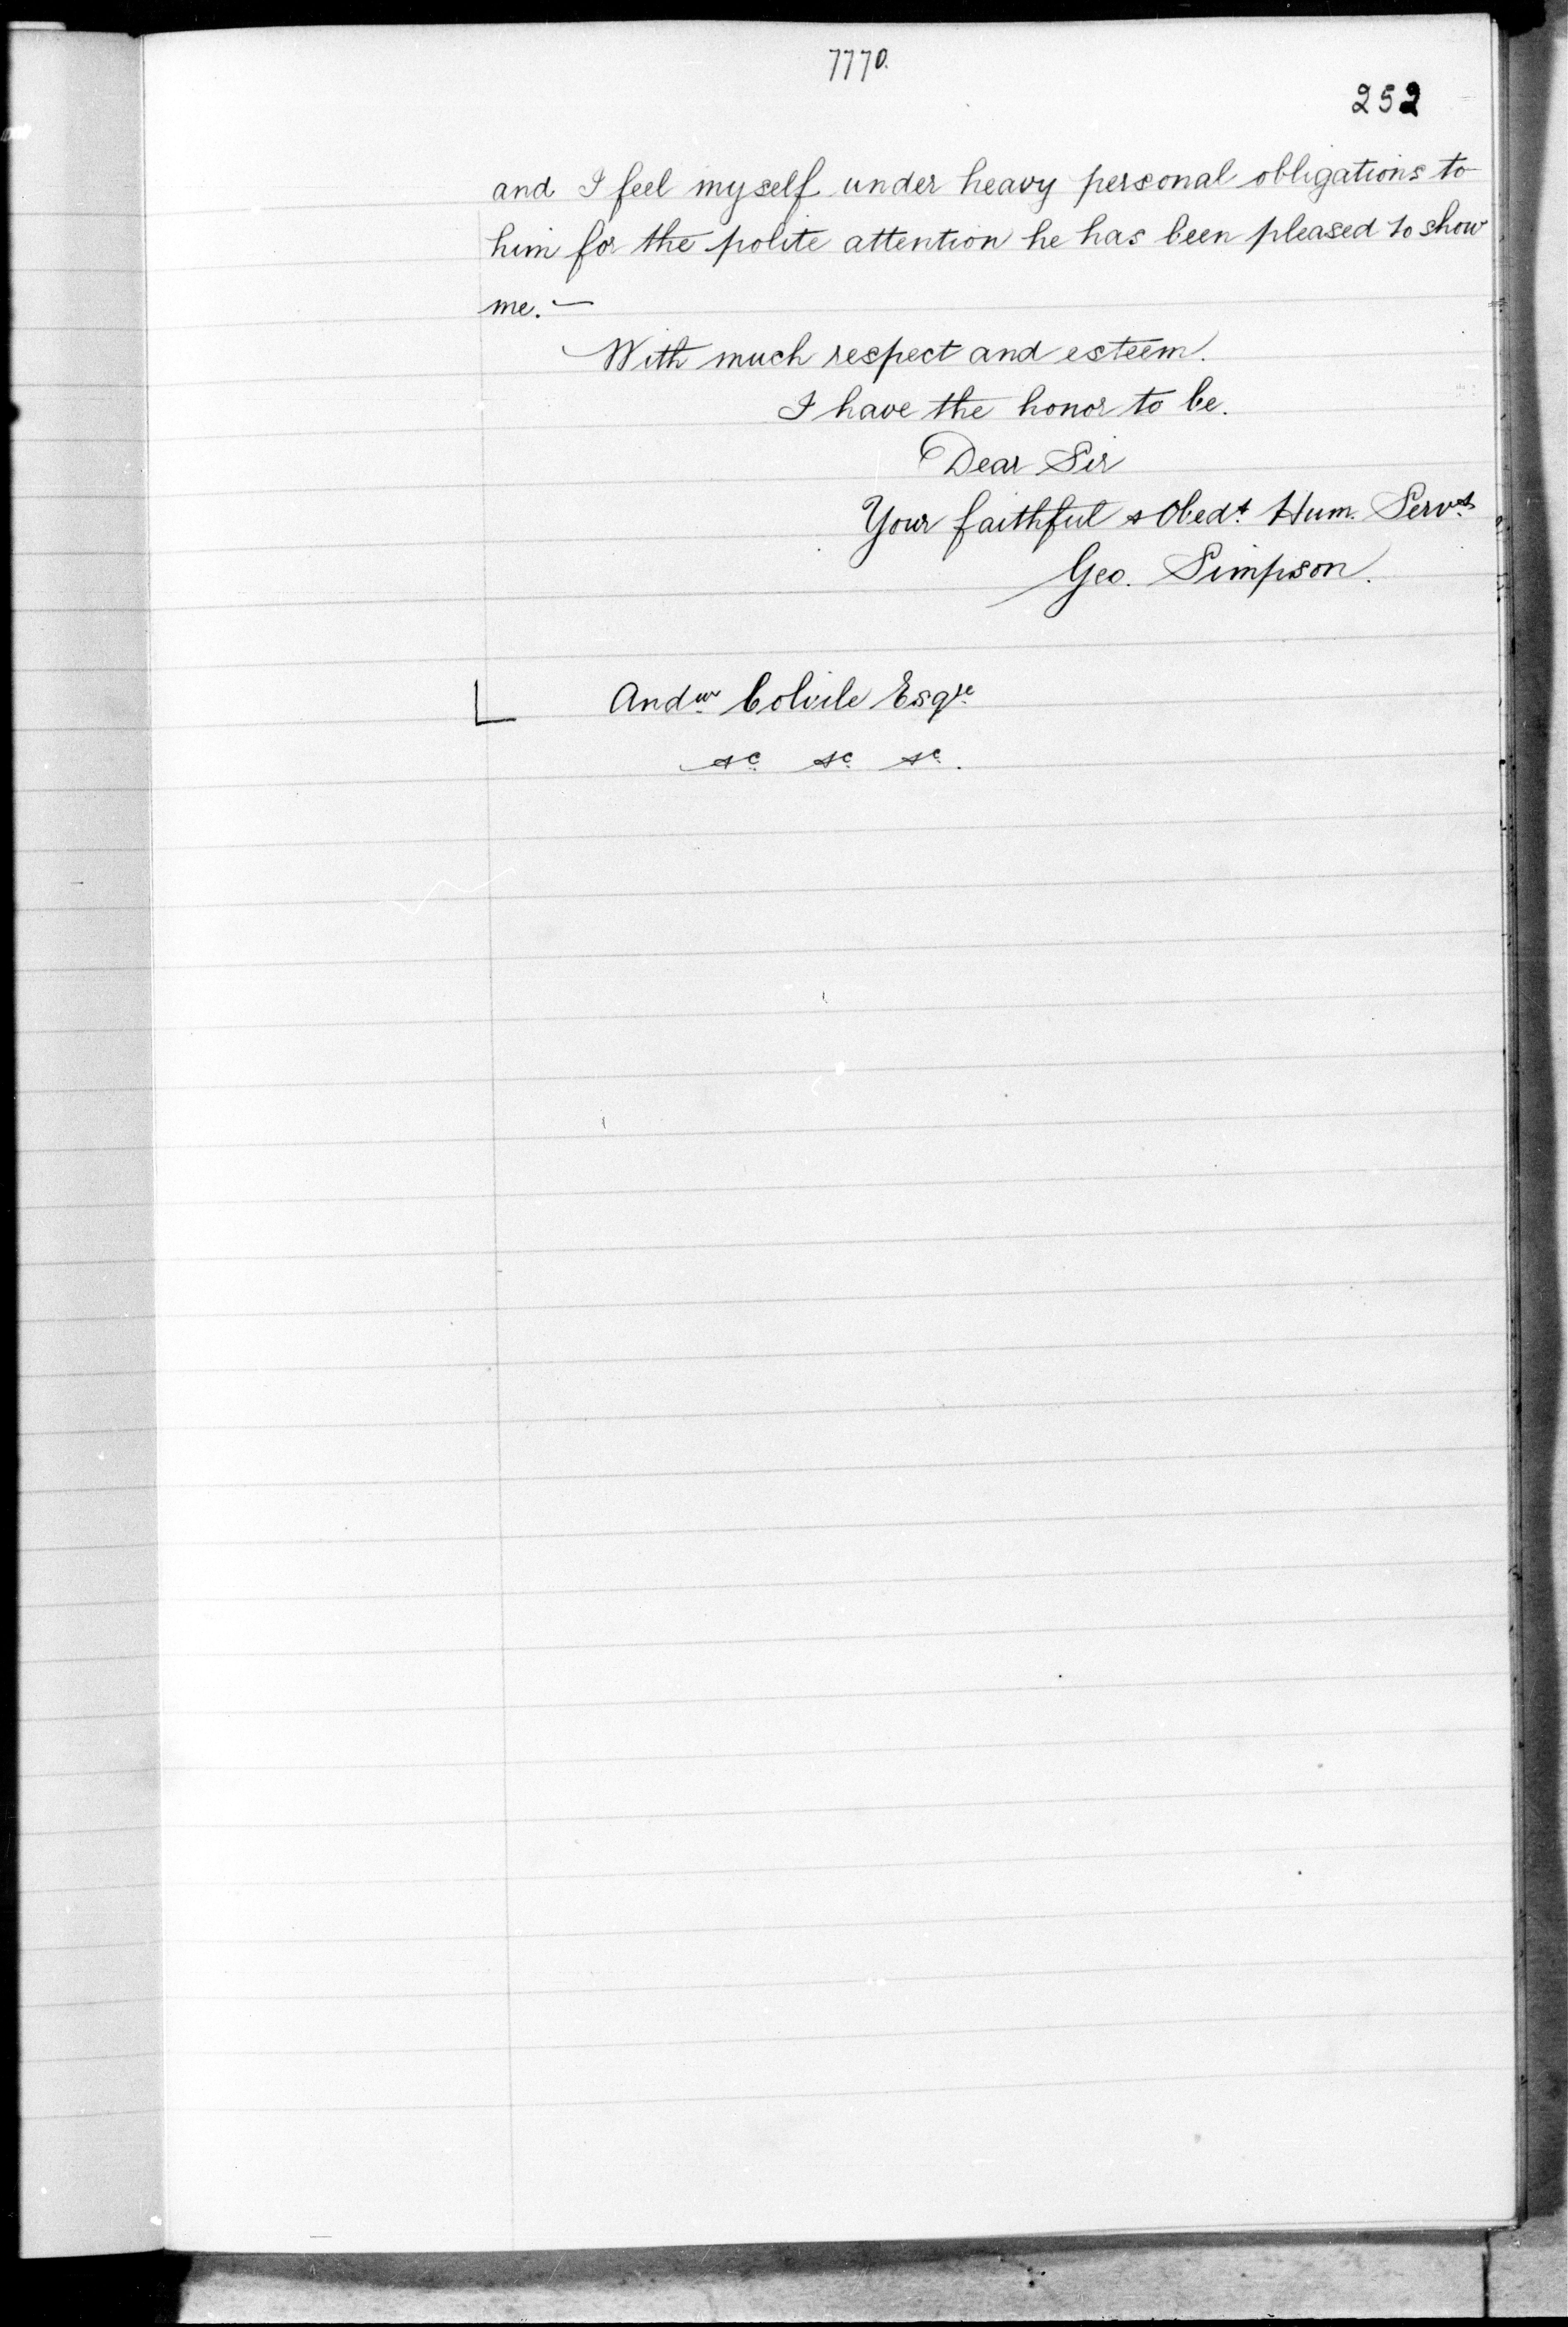 7770.
252
and I feel myself under heavy personal obligations to
him for the polite attention he has been pleased to show
me. —
With much respect and esteem.
I have the honor to be.
Dear Sir
Your faithful & Obedt. Hum. Servt.
Geo. Simpson.
Andw. Colvile Esqre.
&c. &c. &c.